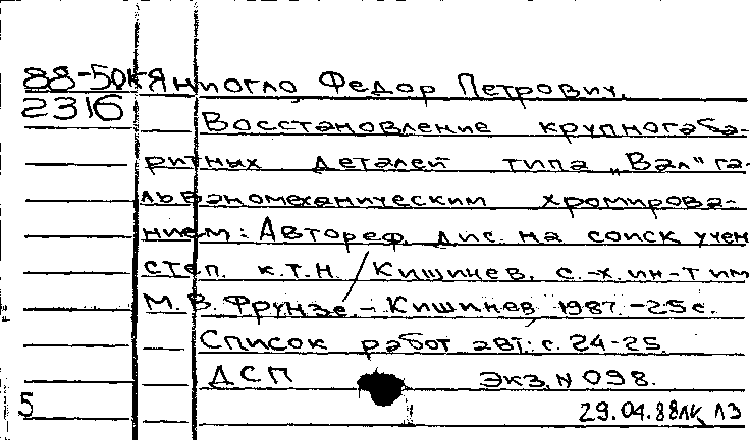 88-50К Яниогло Федор Петрович.
2316
Восстановление крупногаба-
ритных деталей типа „Вал" га-
льваномеханическим хромирова-
нием: Автореф. дис. на соиск учен
степ. к.т.н. / Кишинев. с.-х. ин-т им
М. В. Фрунзе. - Кишинев, 1987. - 25 с.
Список работ авт.: с. 24-25
ДСП Экз. N 098.
5 29.04.88 ЛЗ